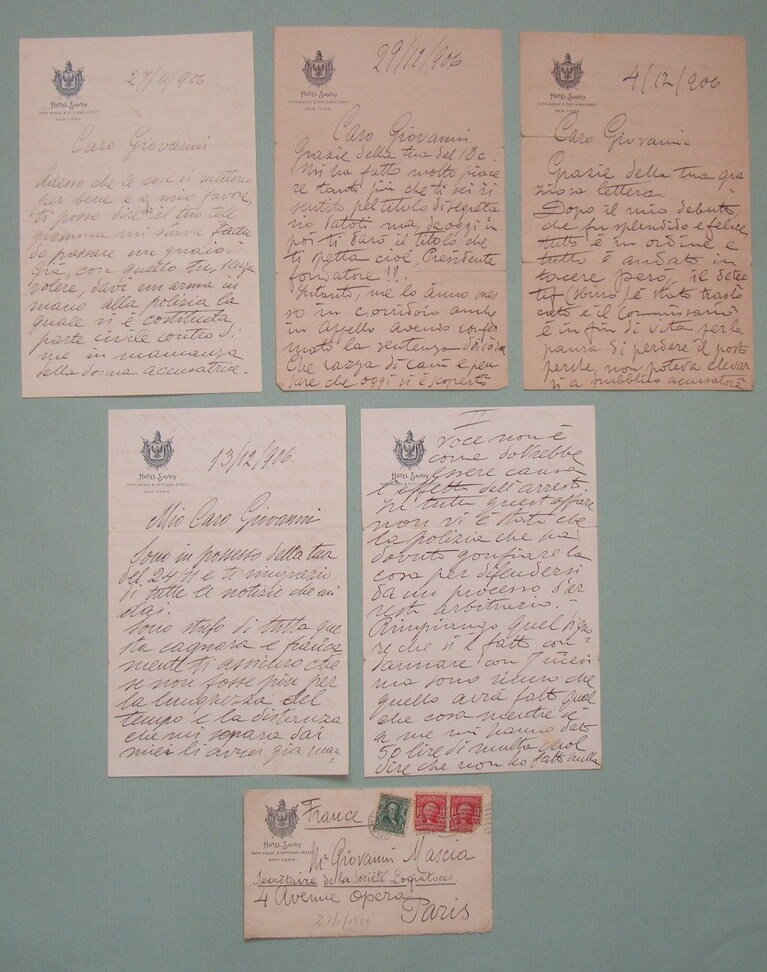 HOTEL SAVOY
FIFTH AVENUE & FIFTY-NINTH STREET
NEW YORK
27/11/906
Caro Giovanni
Adesso che le cose si mettono
per bene e a mio favore,
ti posso dire che il tuo tele
gramma mi stava facen
do passare un guaio.
Già, con quello tu, senza
volere, davi un'arma in
mano alla polizia la
quale si è costituita
parte civile contro di
me in mancanza
della donna accusatrice.
HOTEL SAVOY
FIFTH AVENUE & FIFTY-NINTH STREET
NEW YORK
29/12/906
Caro Giovanni
Grazie della tua del 18 c.
Mi ha fatto molto piace
re tanto più che ti sei ri
sentito pel titolo di segreta
rio ma, da oggi in
poi ti darò il titolo che
ti spetta cioè, Presidente
fondatore!!.
Intanto, me lo ànno mes
so in corridoio anche
in appello avendo confer
mato la sentenza
Che razza di cani e pen
sare che oggi si è scoperto
HOTEL SAVOY
FIFTH AVENUE & FIFTY-NINTH STREET
NEW YORK
4/12/906
Caro Giovanni
Grazie della tua gra
ziosa lettera.
Dopo il mio debutto,
che fu splendido e felice,
tutto è in ordine e
tutto è andato in
tacere però, il detec
tif (sbirro) è stato traslo
cato e il Commissario
è in fin di vita per la
paura di perdere il posto
perche, non poteva elevar
si a pubblico accusatore
HOTEL SAVOY
FIFTH AVENUE & FIFTY-NINTH STREET
NEW YORK
13/12/906
Mio Caro Giovanni
Sono in possesso della tua
del 24/11 e ti ringrazio
di tutte le notizie che mi
dai.
Sono stufo di tutta que
sta cagnara e franca
mente ti assicuro che
se non fosse più per
la lunghezza del
tempo e la distanza
che mi separa dai
miei li avrei già man-
II
HOTEL SAVOY
FIFTH AVENUE & FIFTY-NINTH STREET
NEW YORK
voce non è
come dovrebbe
essere causa
l'effetto dell'arresto
In tutto quest'affare
non vi è stato che
la polizia che ha
dovuto gonfiare la
cosa per difendersi
da un processo d'ar
resto arbitrario.
Rimpiango quel signo-
re che si è fatto con
dannare con 7 mesi
ma sono sicuro che
quello avrà fatto qual
che cosa mentre se
a me mi hanno dato
50 lire di multa vuol
dire che non ho fatto nulla
HOTEL SAVOY
FIFTH AVENUE & FIFTY-NINTH STREET
NEW YORK
France
Mr Giovanni Mascia
Secrétaire della Société
4 Avenue Opera
Paris
27/11/1906